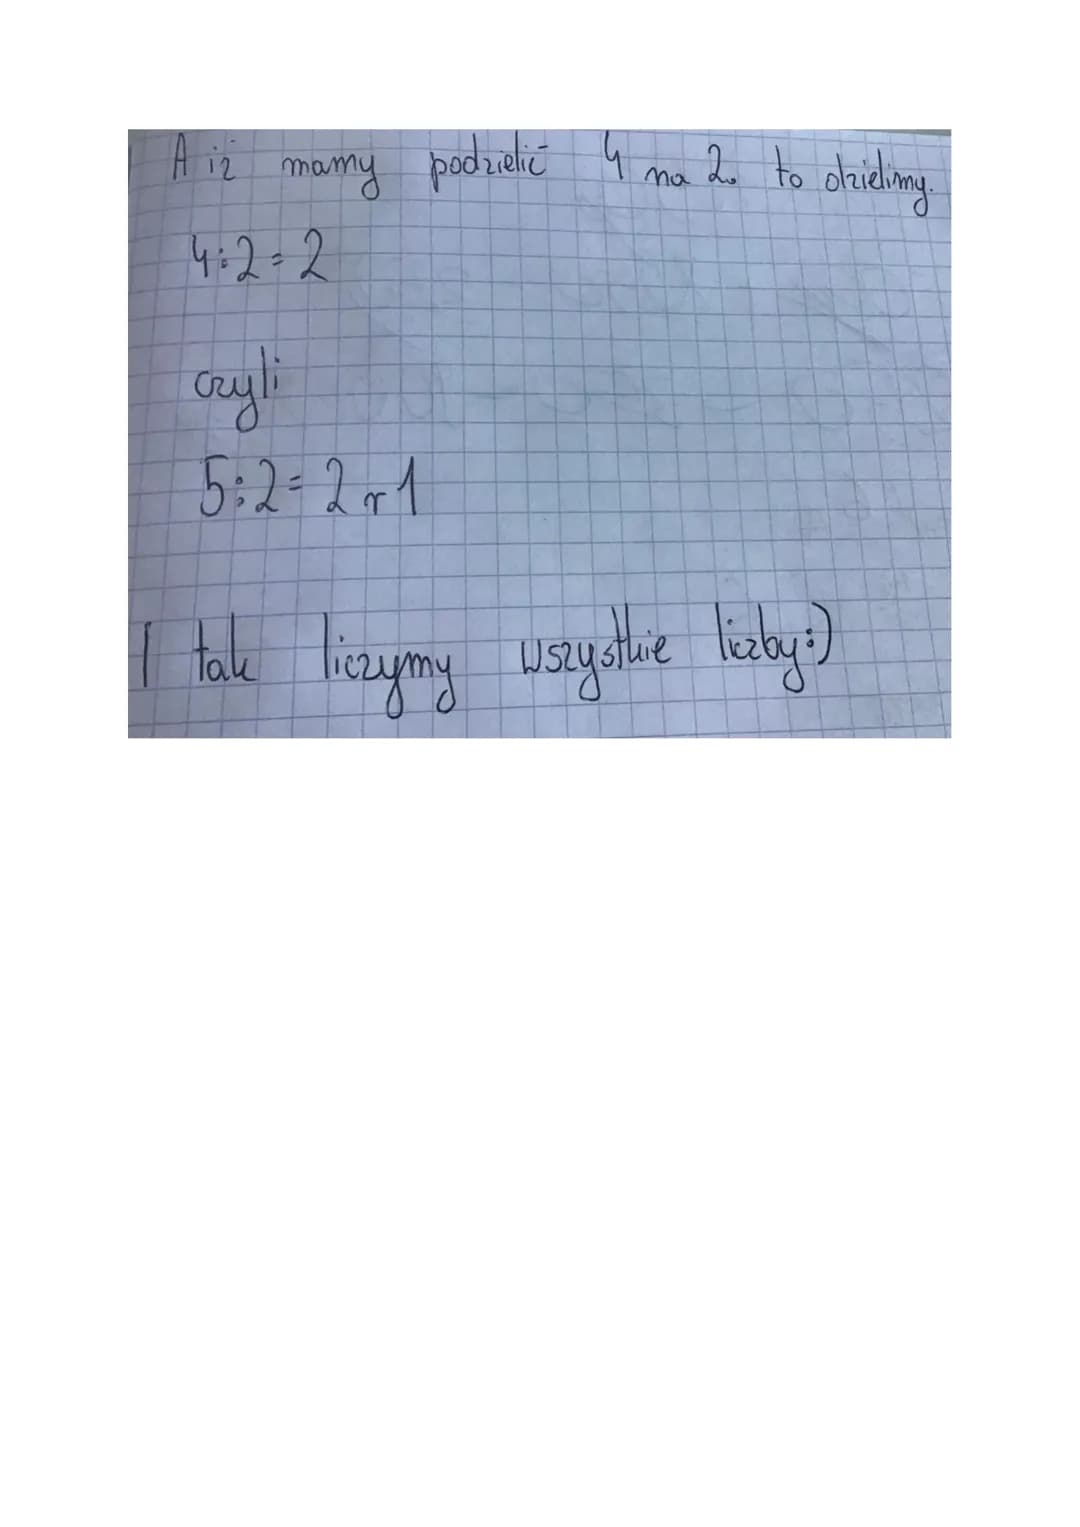 A iż mamy podzielić 4 na 2. to dzielimy.
4:2=2
czyli
5:2=2 r 1
I tak liczymy wszystkie liczby:)